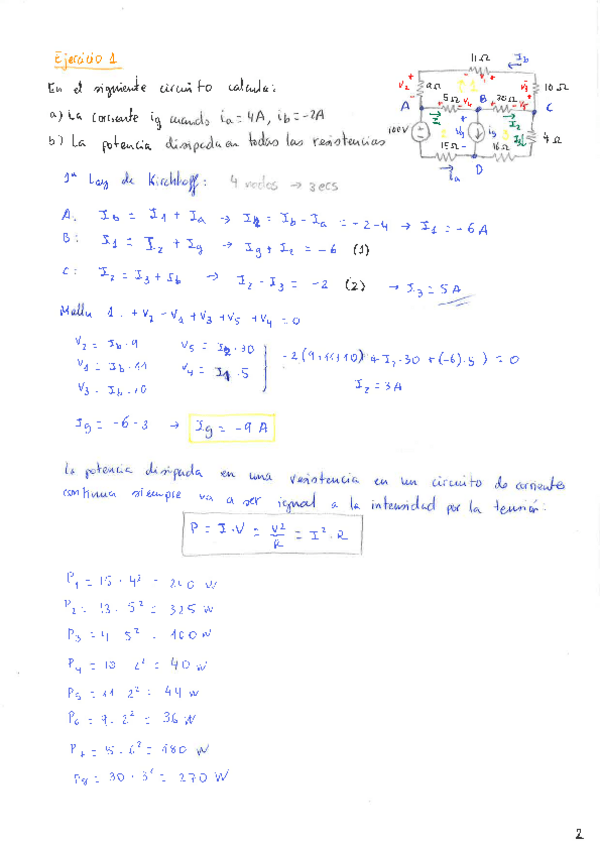 Ejercicio 1
En el siguiente circuito calcula:
a) La corriente ig cuando ia = 4A, ib = -2A
b) La potencia disipada en todas las resistencias
11Ω Ib
V2 9Ω V1 V3 10Ω
A 5Ω V4 B 30Ω V5 C
100V Vg ig I2 I3 4Ω
15Ω 16Ω
ia D
1ª Ley de Kirchhoff: 4 nodos → 3 ecs
A: Ib = I1 + Ia → I1 = Ib - Ia = -2-4 → I1 = -6A
B: I1 = I2 + Ig → Ig + I2 = -6 (1)
C: I2 = I3 + Ib → I2 - I3 = -2 (2) → I3 = 5A
Malla 1. + V2 - V1 + V3 + V5 + V4 = 0
V2 = Ib·9 V5 = I2·30
V1 = Ib·11 V4 = I1·5
V3 = Ib·10
-2(9+11+10) + I2·30 + (-6)·5 ) = 0
I2 = 3A
Ig = -6-3 → Ig = -9 A
La potencia disipada en una resistencia en un circuito de corrientes
continua siempre va a ser igual a la intensidad por la tensión:
P = I·V = V²/R = I²·R
P1 = 15·4² = 240 W
P2 = 13·5² = 325 W
P3 = 4 5² = 100 W
P4 = 10 2² = 40 W
P5 = 11 2² = 44 W
P6 = 9·2² = 36 W
P7 = 5·6² = 180 W
P8 = 30·3² = 270 W
2